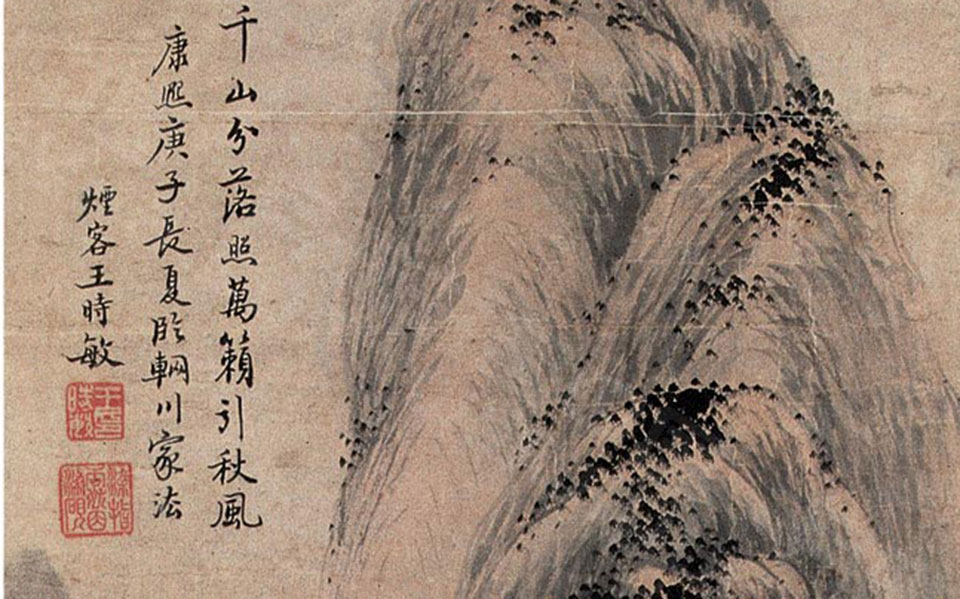 千山分落照萬籟引秋風
康熙庚子長夏臨輞川家法
煙客王時敏